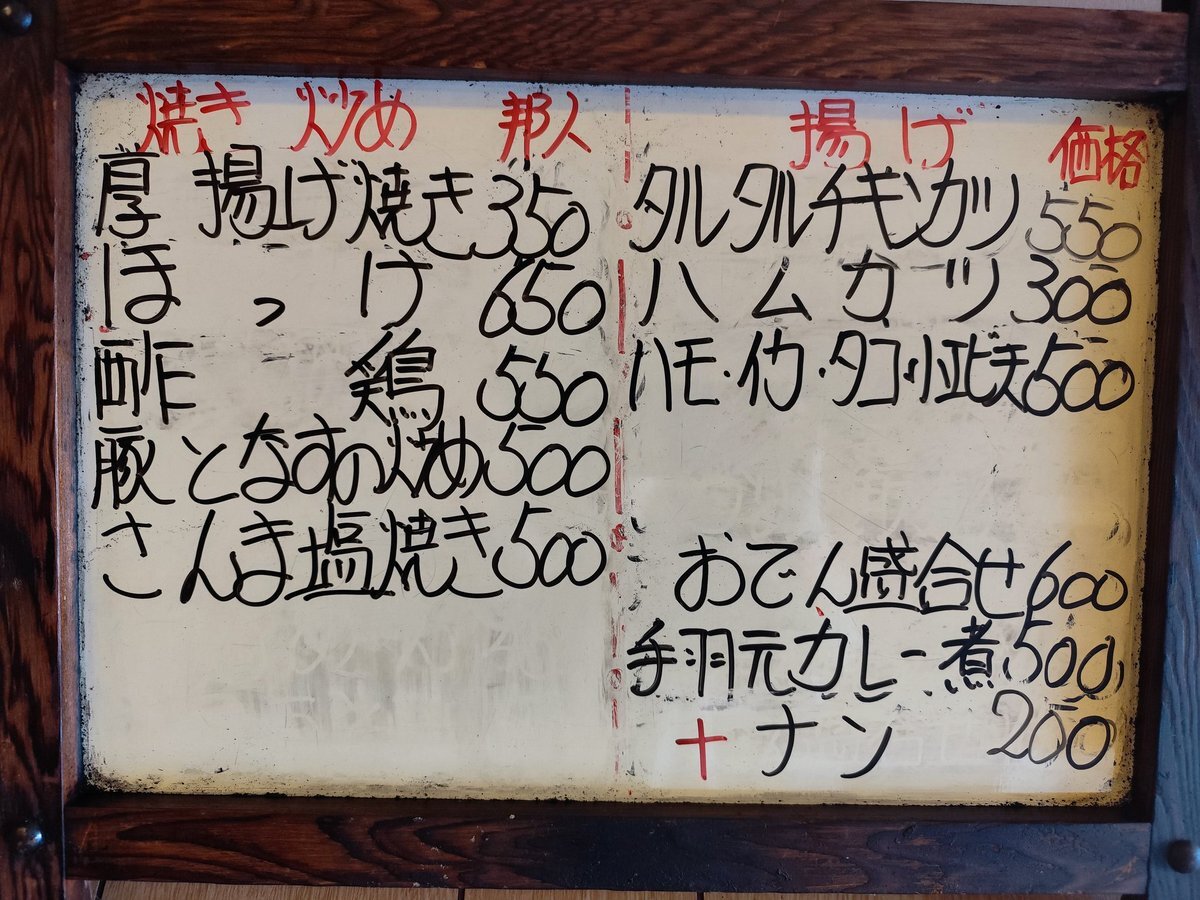 焼き 炒め 邦人
厚揚げ焼き 350
ほっけ 650
酢鶏 550
豚となすの炒め 500
さんま塩焼き 500
揚げ 価格
タルタルチキンカツ 550
ハムカツ 300
ハモ・イカ・タコ・小エビ天 500
おでん盛合せ 600
手羽元カレー煮 500
+ナン 200